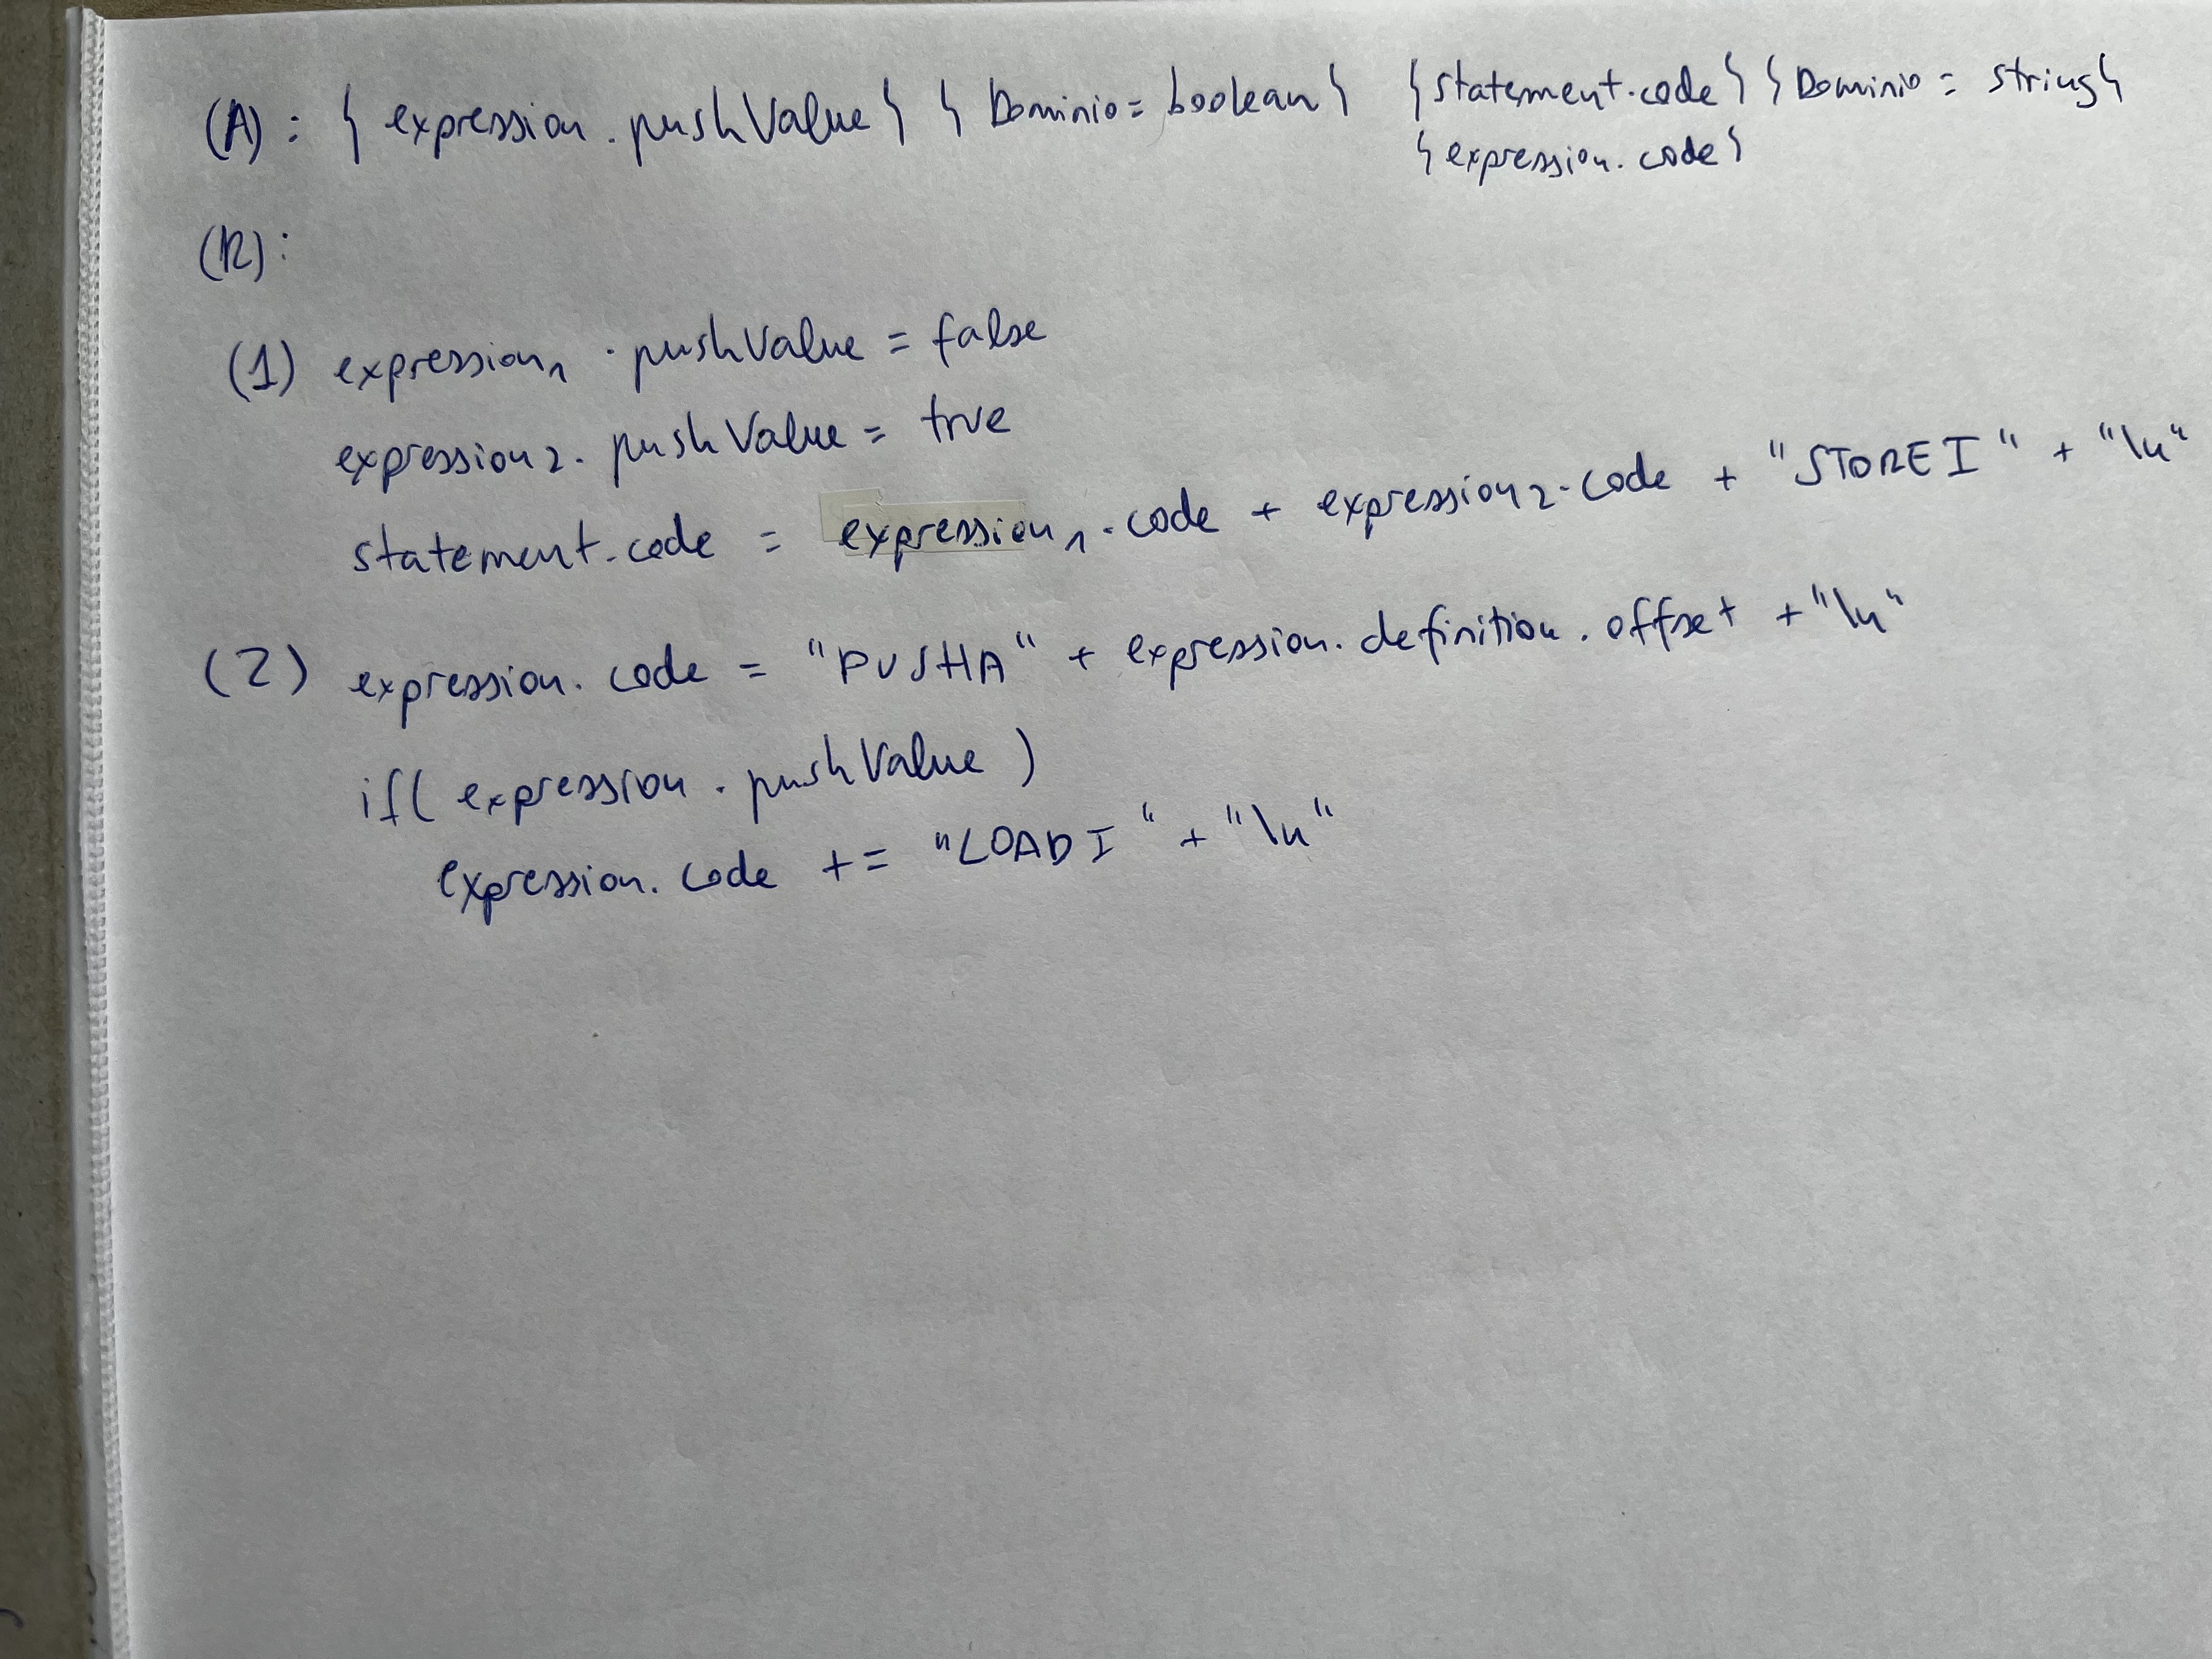 (A): { expression.pushValue } { Dominio = boolean } {statement.code} {Dominio = string}
{expression.code}
(R):
(1) expression₁.pushValue = false
expression₂.pushValue = true
statement.code = expression₁.code + expression₂.code + "STOREI" + "\n"
(2) expression.code = "PUSHA" + expression.definition.offset + "\n"
if( expression.pushValue )
expression.code += "LOADI" + "\n"